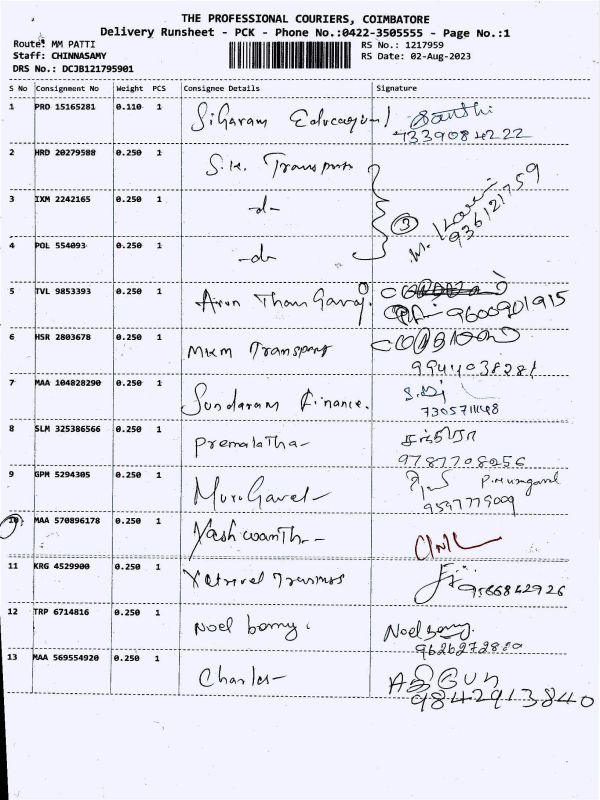 THE PROFESSIONAL COURIERS, COIMBATORE
Delivery Runsheet - PCK - Phone No.:0422-3505555 - Page No.:1
Route: MM PATTI
RS No.: 1217959
Staff: CHINNASAMY
RS Date: 02-Aug-2023
DRS No.: DCJB121795901
S No Consignment No Weight PCS Consignee Details Signature
1 PRO 15165281 0.110 1
7339084222
2 HRD 20279588 0.250 1 S.K. Transport
3 IXM 2242165 0.250 1 -do-
3
936121759
4 POL 554093 0.250 1 -do-
5 TVL 9853393 0.250 1 Arun
9600901915
6 HSR 2803678 0.250 1 MKM Transport
9944038281
7 MAA 104828290 0.250 1 Sundaram Finance.
8 SLM 325386566 0.250 1 Premalatha
9787708256
9 GPM 5294305 0.250 1 Murugavel
10 MAA 570896178 0.250 1 Yashwanth
11 KRG 4529900 0.250 1
9566842926
12 TRP 6714816 0.250 1 Noel
Noel
9626272880
13 MAA 569554920 0.250 1 Charles
9842913840